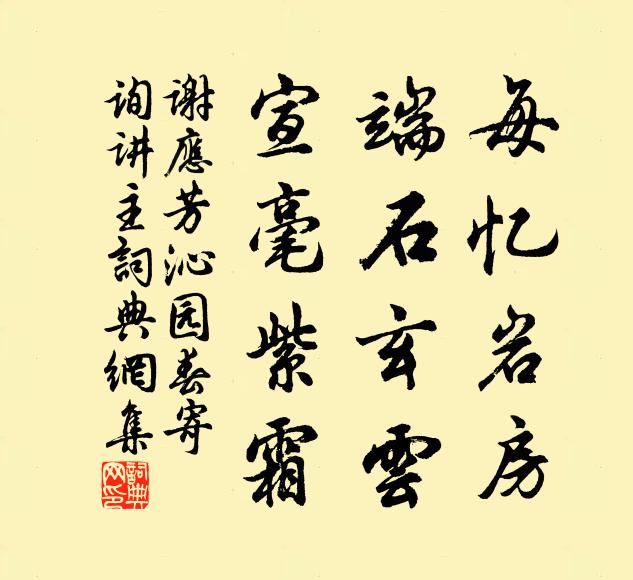 每忆岩房
端石玄雲
宣毫紫霜
谢應芳沁园春寄
询讲主詞典網集
詞典网印